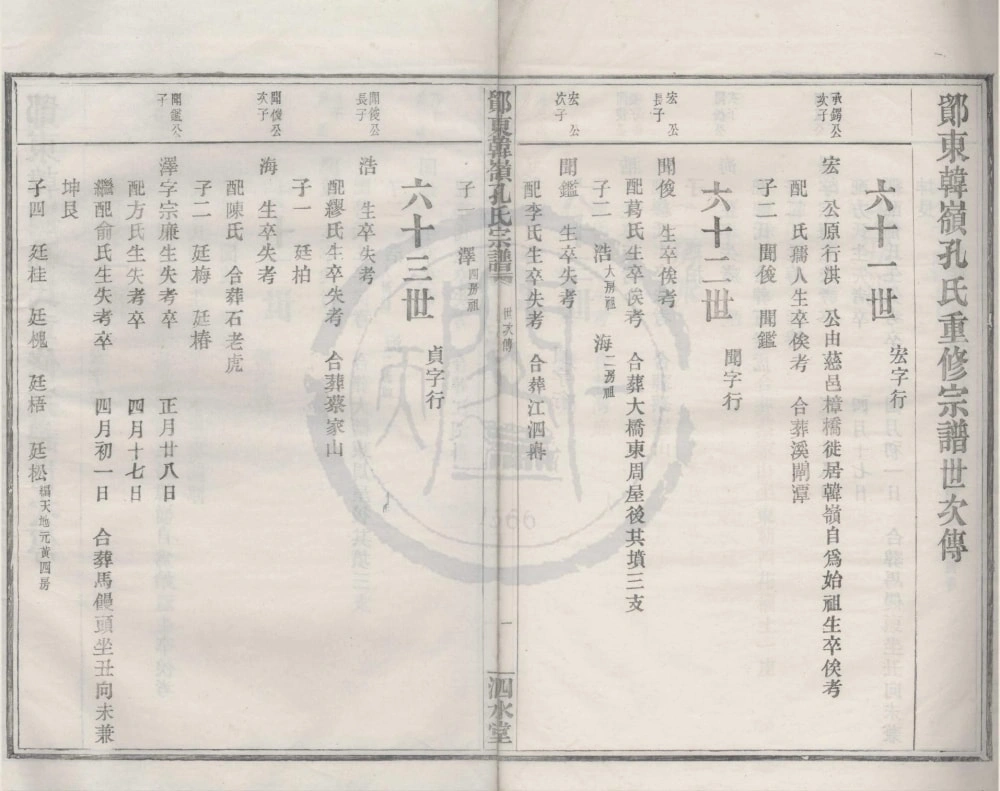 鄮東韓嶺孔氏重修宗譜世次傳
六十一世 宏字行
承鐊公次子
宏 公原行淇 公由慈邑樟橋徙居韓嶺自爲始祖生卒俟考
配 氏孺人生卒俟考 合葬溪閘潭
子二 聞俊 聞鑑
六十二世 聞字行
宏公長子
聞俊 生卒俟考
配葛氏生卒俟考 合葬大橋東周屋後其墳三支
子二 浩大房祖 海二房祖
宏公次子
聞鑑 生卒失考
配李氏生卒失考 合葬江泗
子一 澤四房祖
鄮東韓嶺孔氏宗譜 世次傳 一 泗水堂
六十三世 貞字行
聞俊公長子
浩 生卒失考
配繆氏生卒失考 合葬蔡家山
子一 廷柏
聞俊公次子
海 生卒失考
配陳氏 合葬石老虎
子二 廷梅 廷椿
聞鑑公子
澤字宗廉生失考卒 正月廿八日
配方氏生失考卒 四月十七日
繼配俞氏生失考卒 四月初一日 合葬馬饅頭坐丑向未兼
坤艮
子四 廷桂 廷槐 廷梧 廷松福天地元黃四房